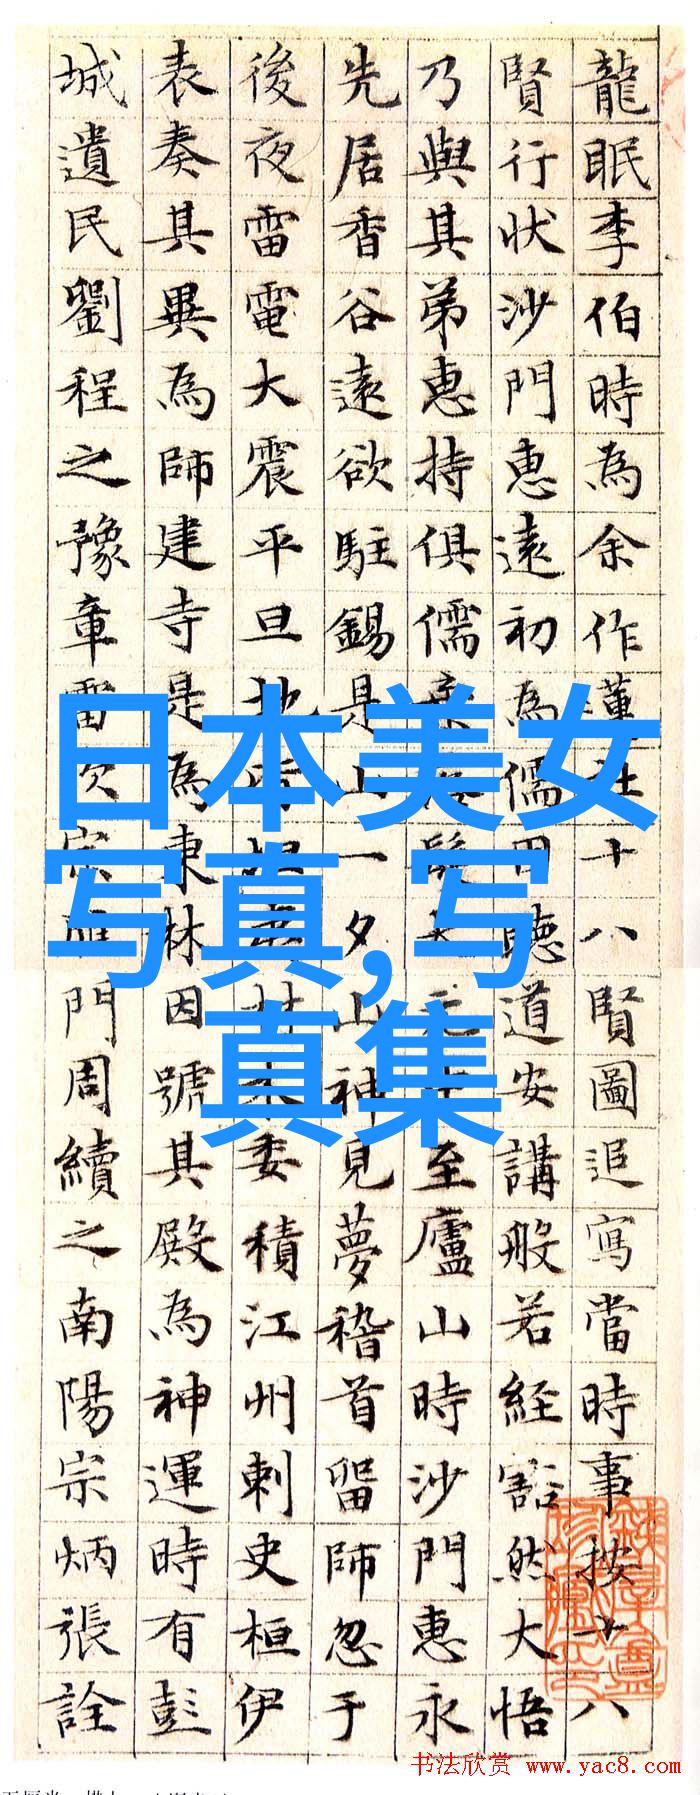 龍眠李伯時為余作蓮社十八賢圖追寫當時事按十八
賢行狀沙門惠遠初為儒因聽道安講般若經豁然大悟
乃與其弟惠持俱儒髮至廬山時沙門惠永
先居香谷遠欲駐錫是山一夕山神見夢稽首留師忽于
後夜雷電大震平旦地木委積江州刺史桓伊
表奏其異為師建寺是為東林因號其殿為神運時有彭
城遺民劉程之豫章雷次宗雁門周續之南陽宗炳張詮
日本美女
写真,写
真集
书法欣赏 www.yac8.com